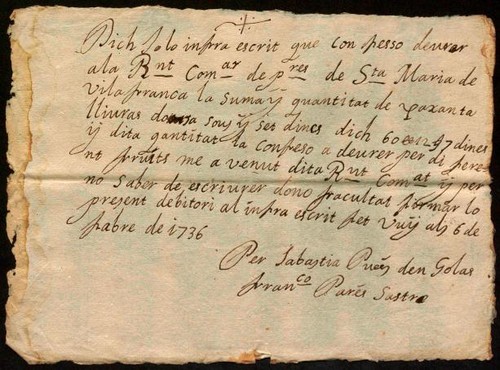 Dich jo lo infra escrit que confesso deurer
a la Rnt Comar de pres de Sta Maria de
Vila franca la suma y quantitat de xaxanta
lliuras dotsa sous y set dines dich 60 12 7 dines
y dita qantitat la Confeso a deurer per di
nt fruits me a venut dita Rnt Comat y per
no saber de escriurer dono facultat firmar lo
present debitori al infra escrit fet Vuy als 6 de
fabre de 1736
Per Sabastia Pues den Golas
Franco Pares Sastre